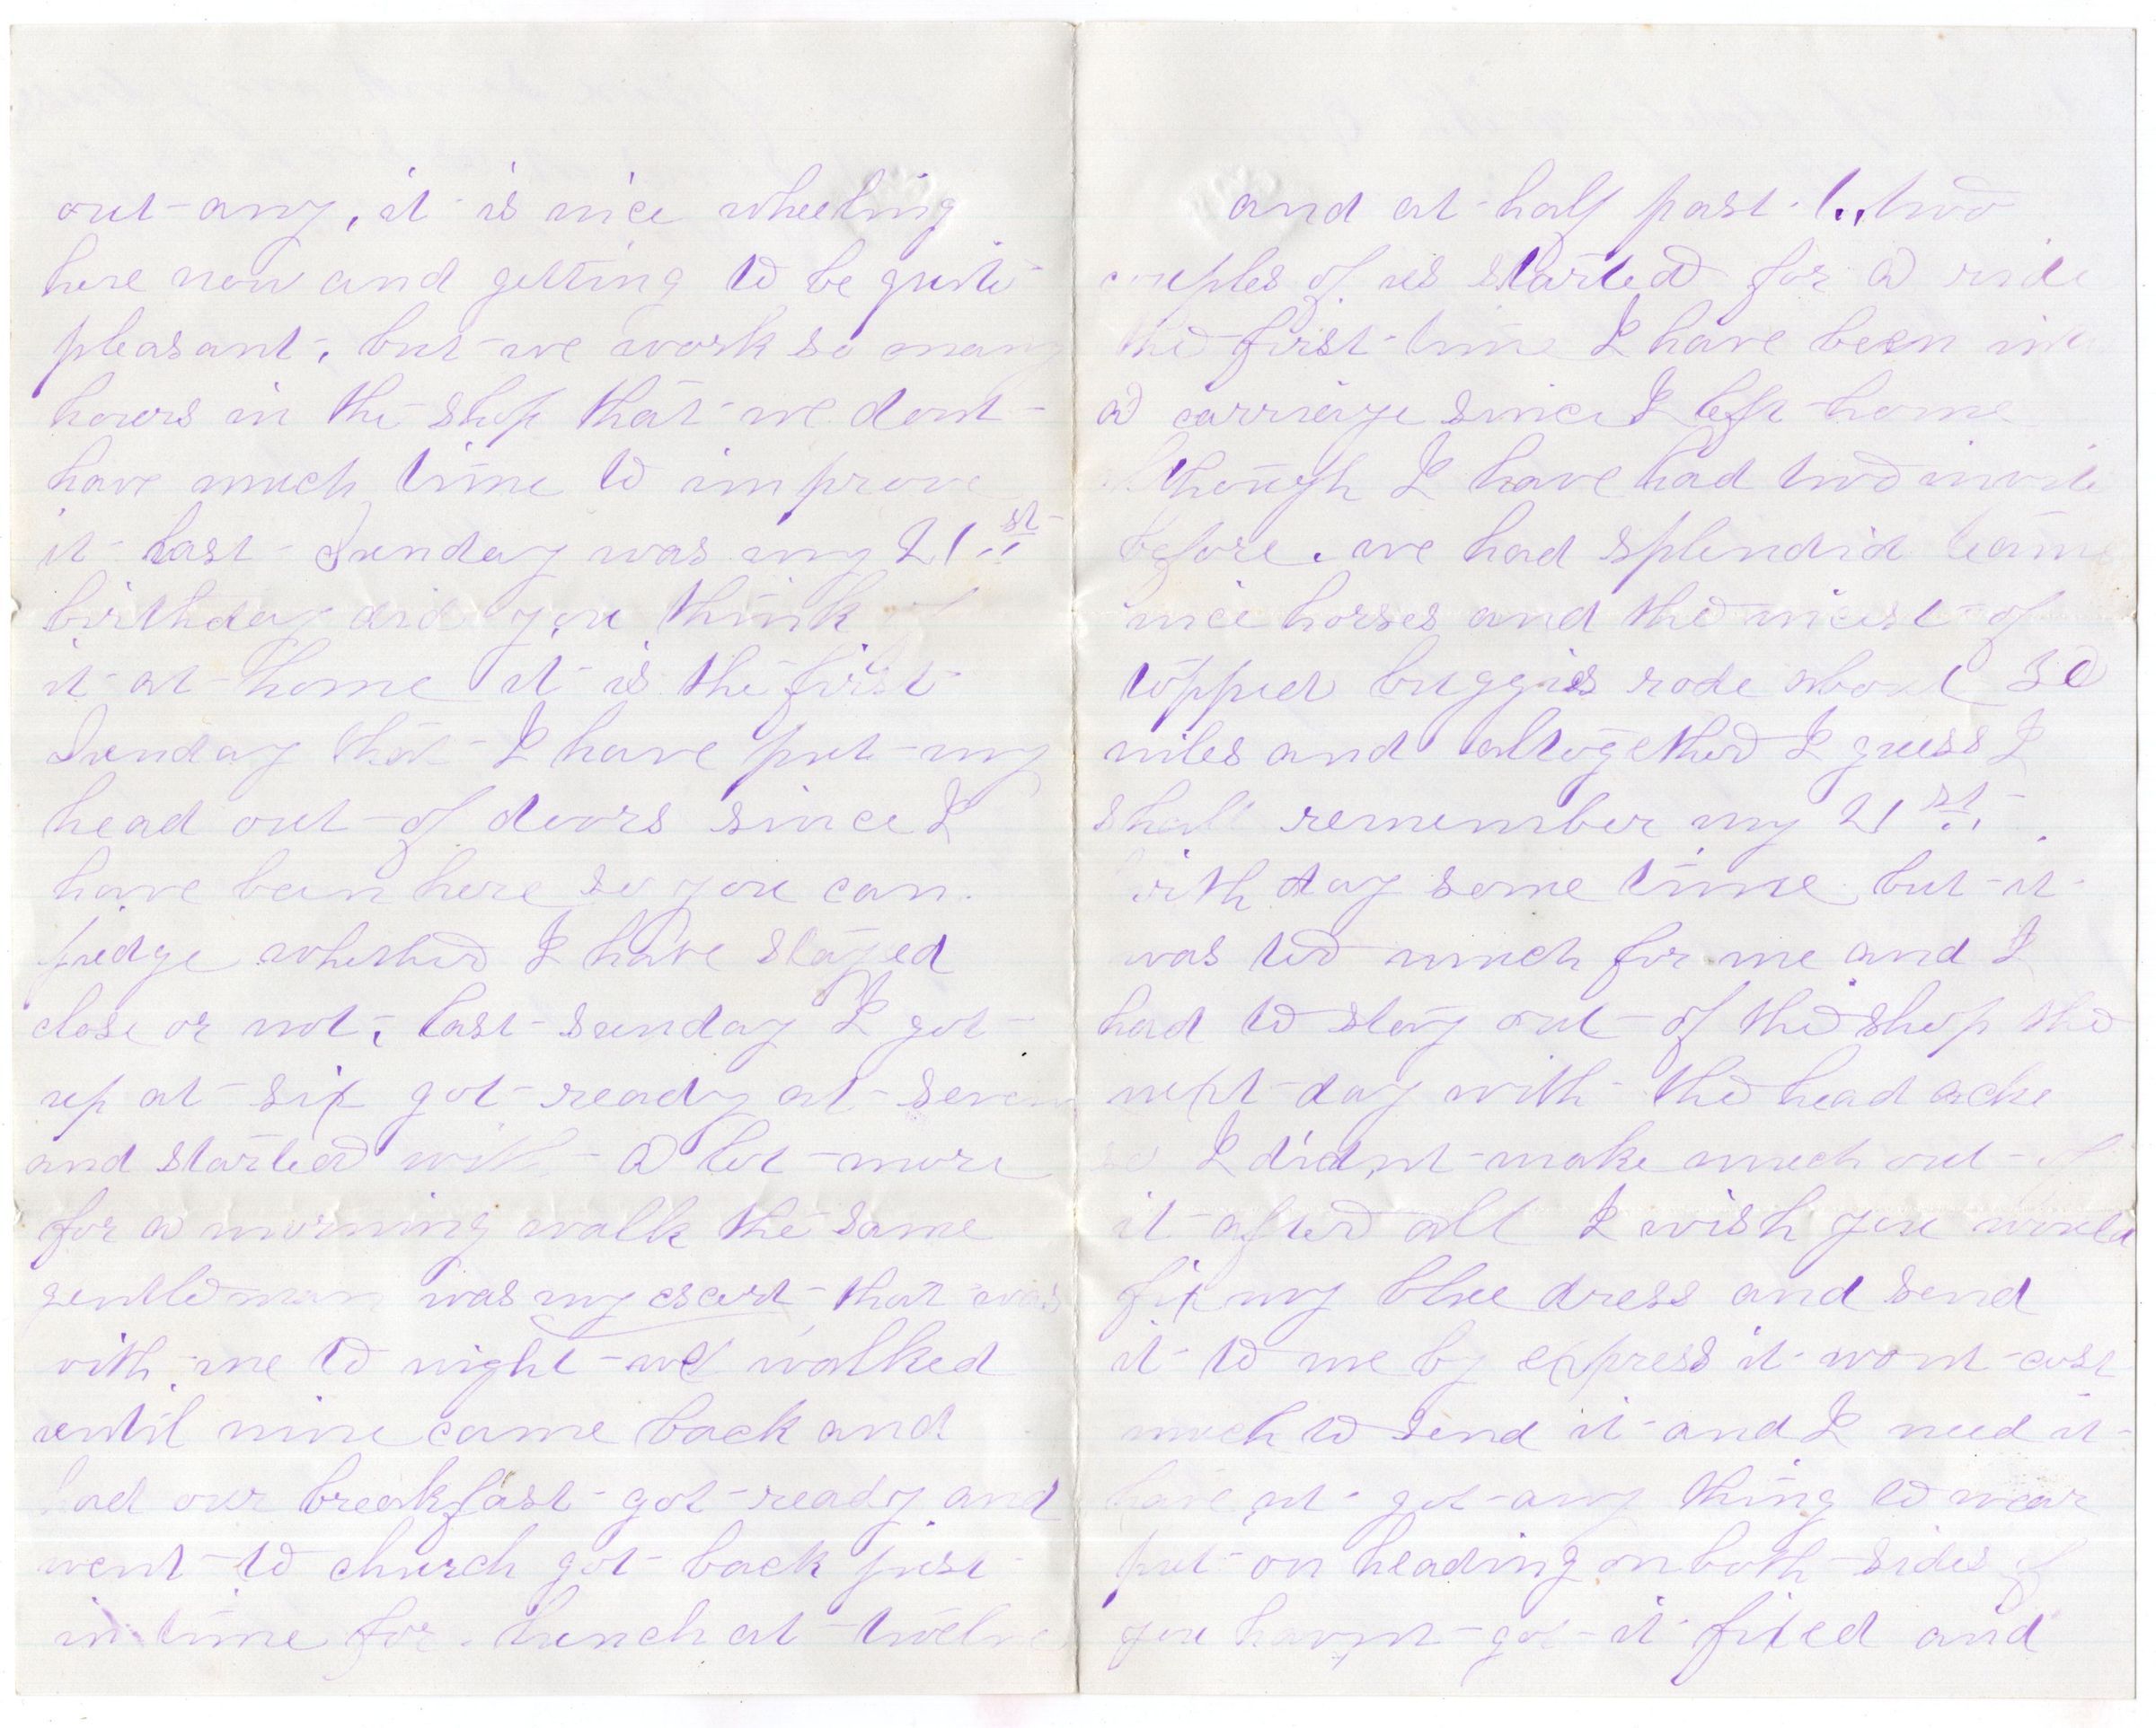 out any, it is nice wheeling
here now and getting to be quite
pleasant, but we work so many
hours in the shop that we dont
have much time to improve
it last Sunday was my 21st
birthday did you think of
it at home it is the first
Sunday that I have put my
head out of doors since I
have been here so you can
judge whether I have stayed
close or not, last sunday I got
up at six got ready at seven
and started with a lot more
for a morning walk the same
gentleman was my escort that was
with me to night we walked
until nine came back and
had our breakfast got ready and
went to church got back just
in time for lunch at twelve
and at half past 1., two
couples of us started for a ride
the first time I have been in
a carriage since I left home
though I have had two invite
before. we had splendid teams
nice horses and the nicest of
topped buggies rode about 30
miles and altogether I guess I
shall remember my 21st.
birth day some time but it
was too much for me and I
had to stay out of the shop the
next day with the head ache
so I didnt make much out of
it after all I wish you would
fix my blue dress and send
it to me by express it wont cost
much to send it and I need it
have nt got any thing to wear
put on heading on both sides if
you havnt got it fixed and